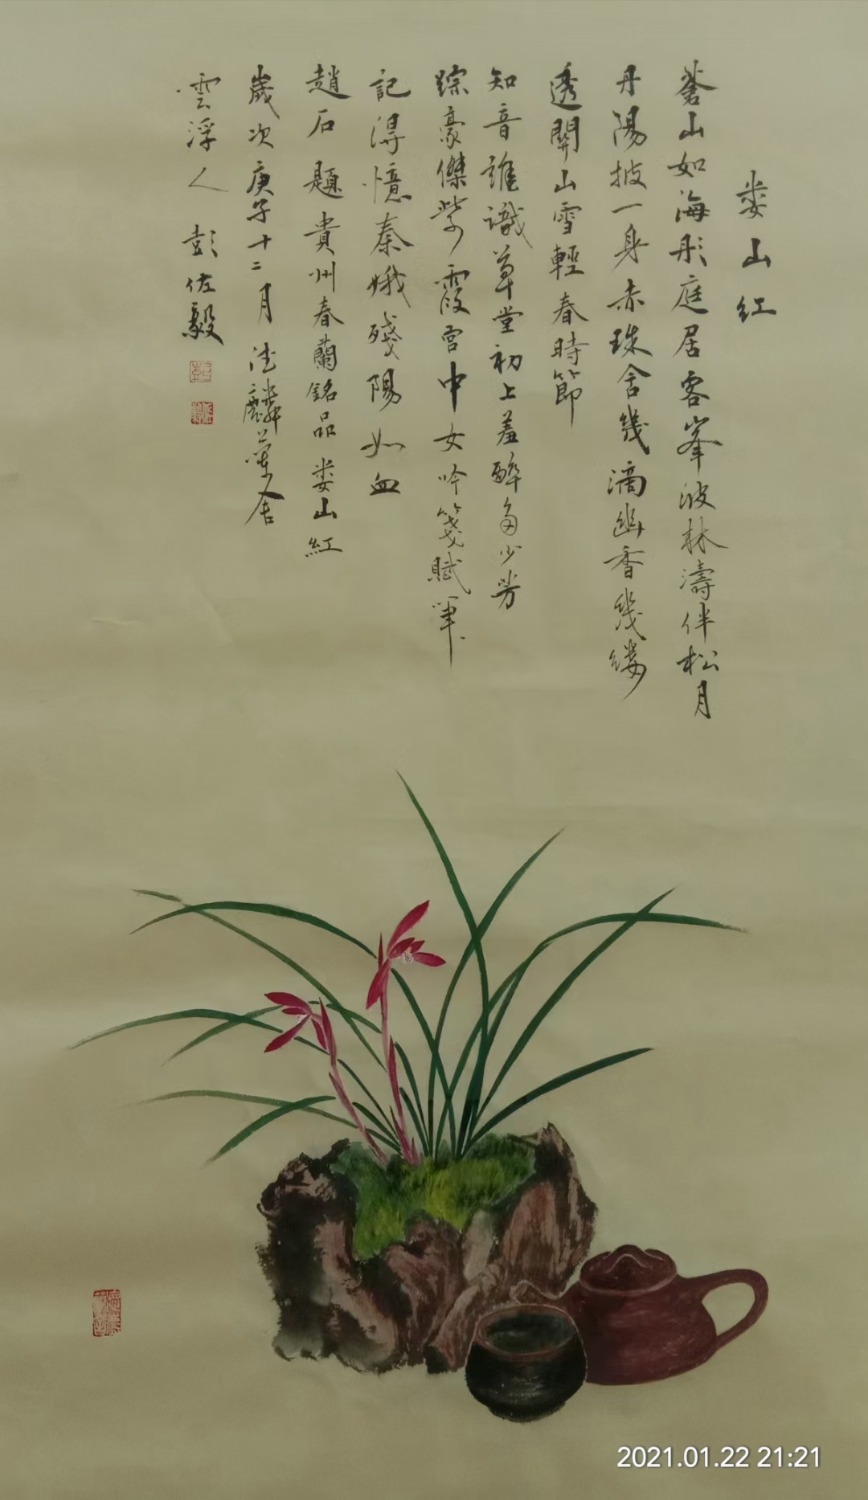 娄山红
蒼山如海彤庭居客峯波林濤伴松月
丹陽披一身赤珠含幾滴幽香幾縷
透關山雪輕春時節
知音誰識草堂初上羞醉多少芳
踪豪傑紫霞宫中女吟箋賦筆
記得憶秦娥殘陽如血
趙石題貴州春蘭銘品娄山红
歲次庚子十二月法麟蘭舍
雲浮人彭佐毅
2021.01.22 21:21